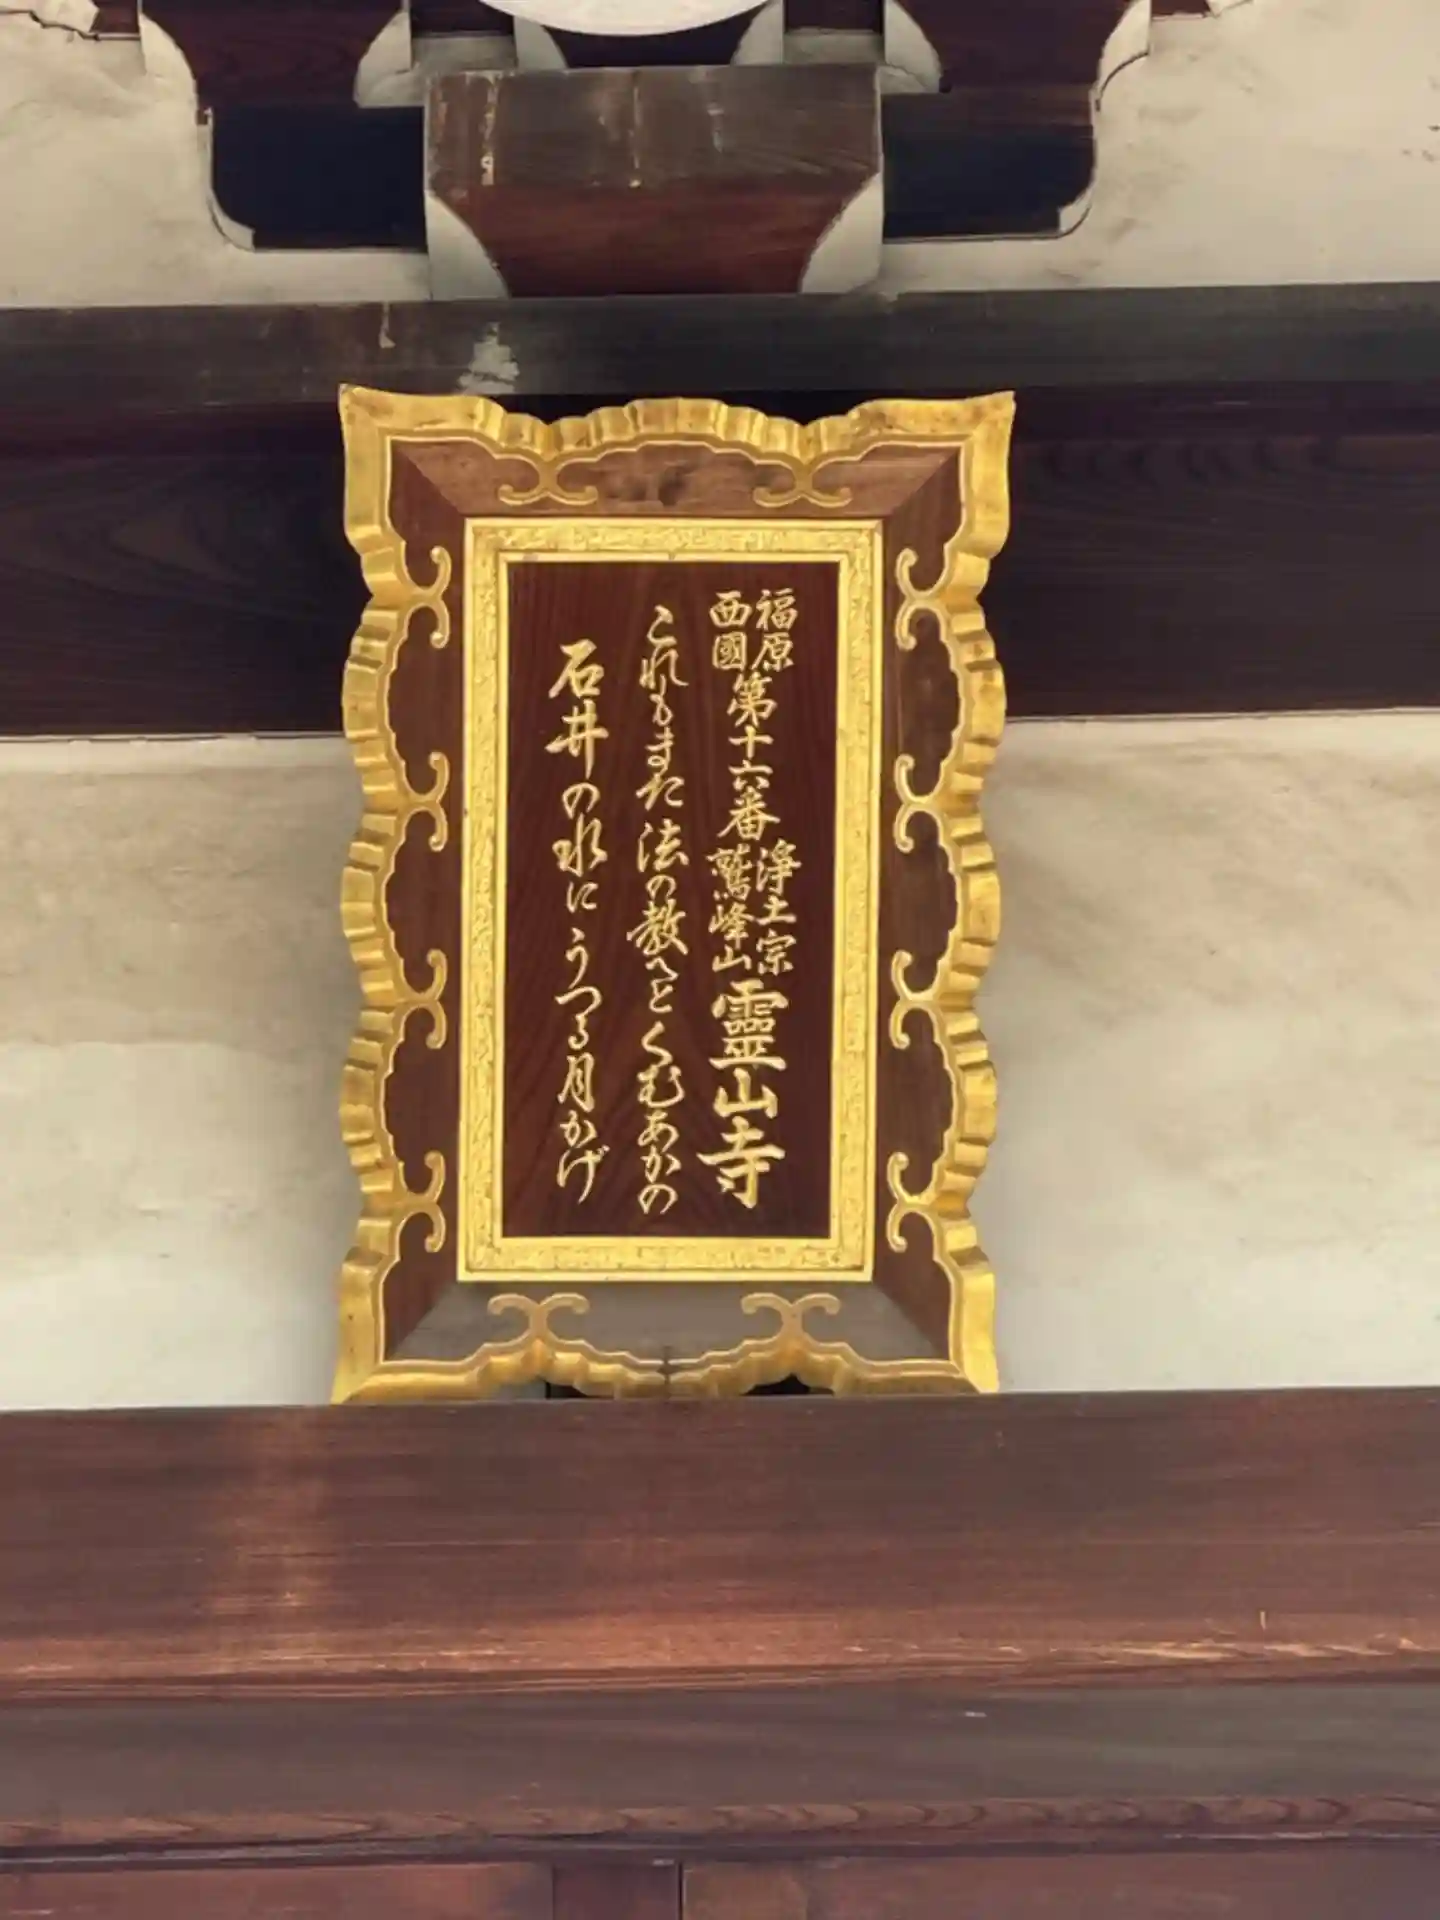 福原西國第十六番 淨土宗鷲峰山靈山寺
これもまた法の教へとくむあかの
石井の水にうつる月かげ